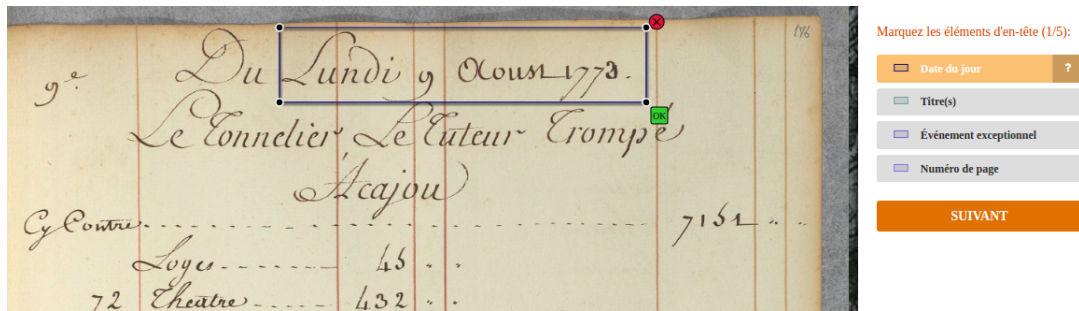 176
Du Lundi 9 Aoust 1773.
9e
Le Tonnelier, Le Tuteur Trompé
Acajou
Cy Contre . . . . . . . . . . . . 7151 . .
Loges . . . . . . 45 . .
72 Theatre . . . . . 432 . .
OK
Marquez les éléments d'en-tête (1/5):
Date du jour ?
Titre(s)
Événement exceptionnel
Numéro de page
SUIVANT